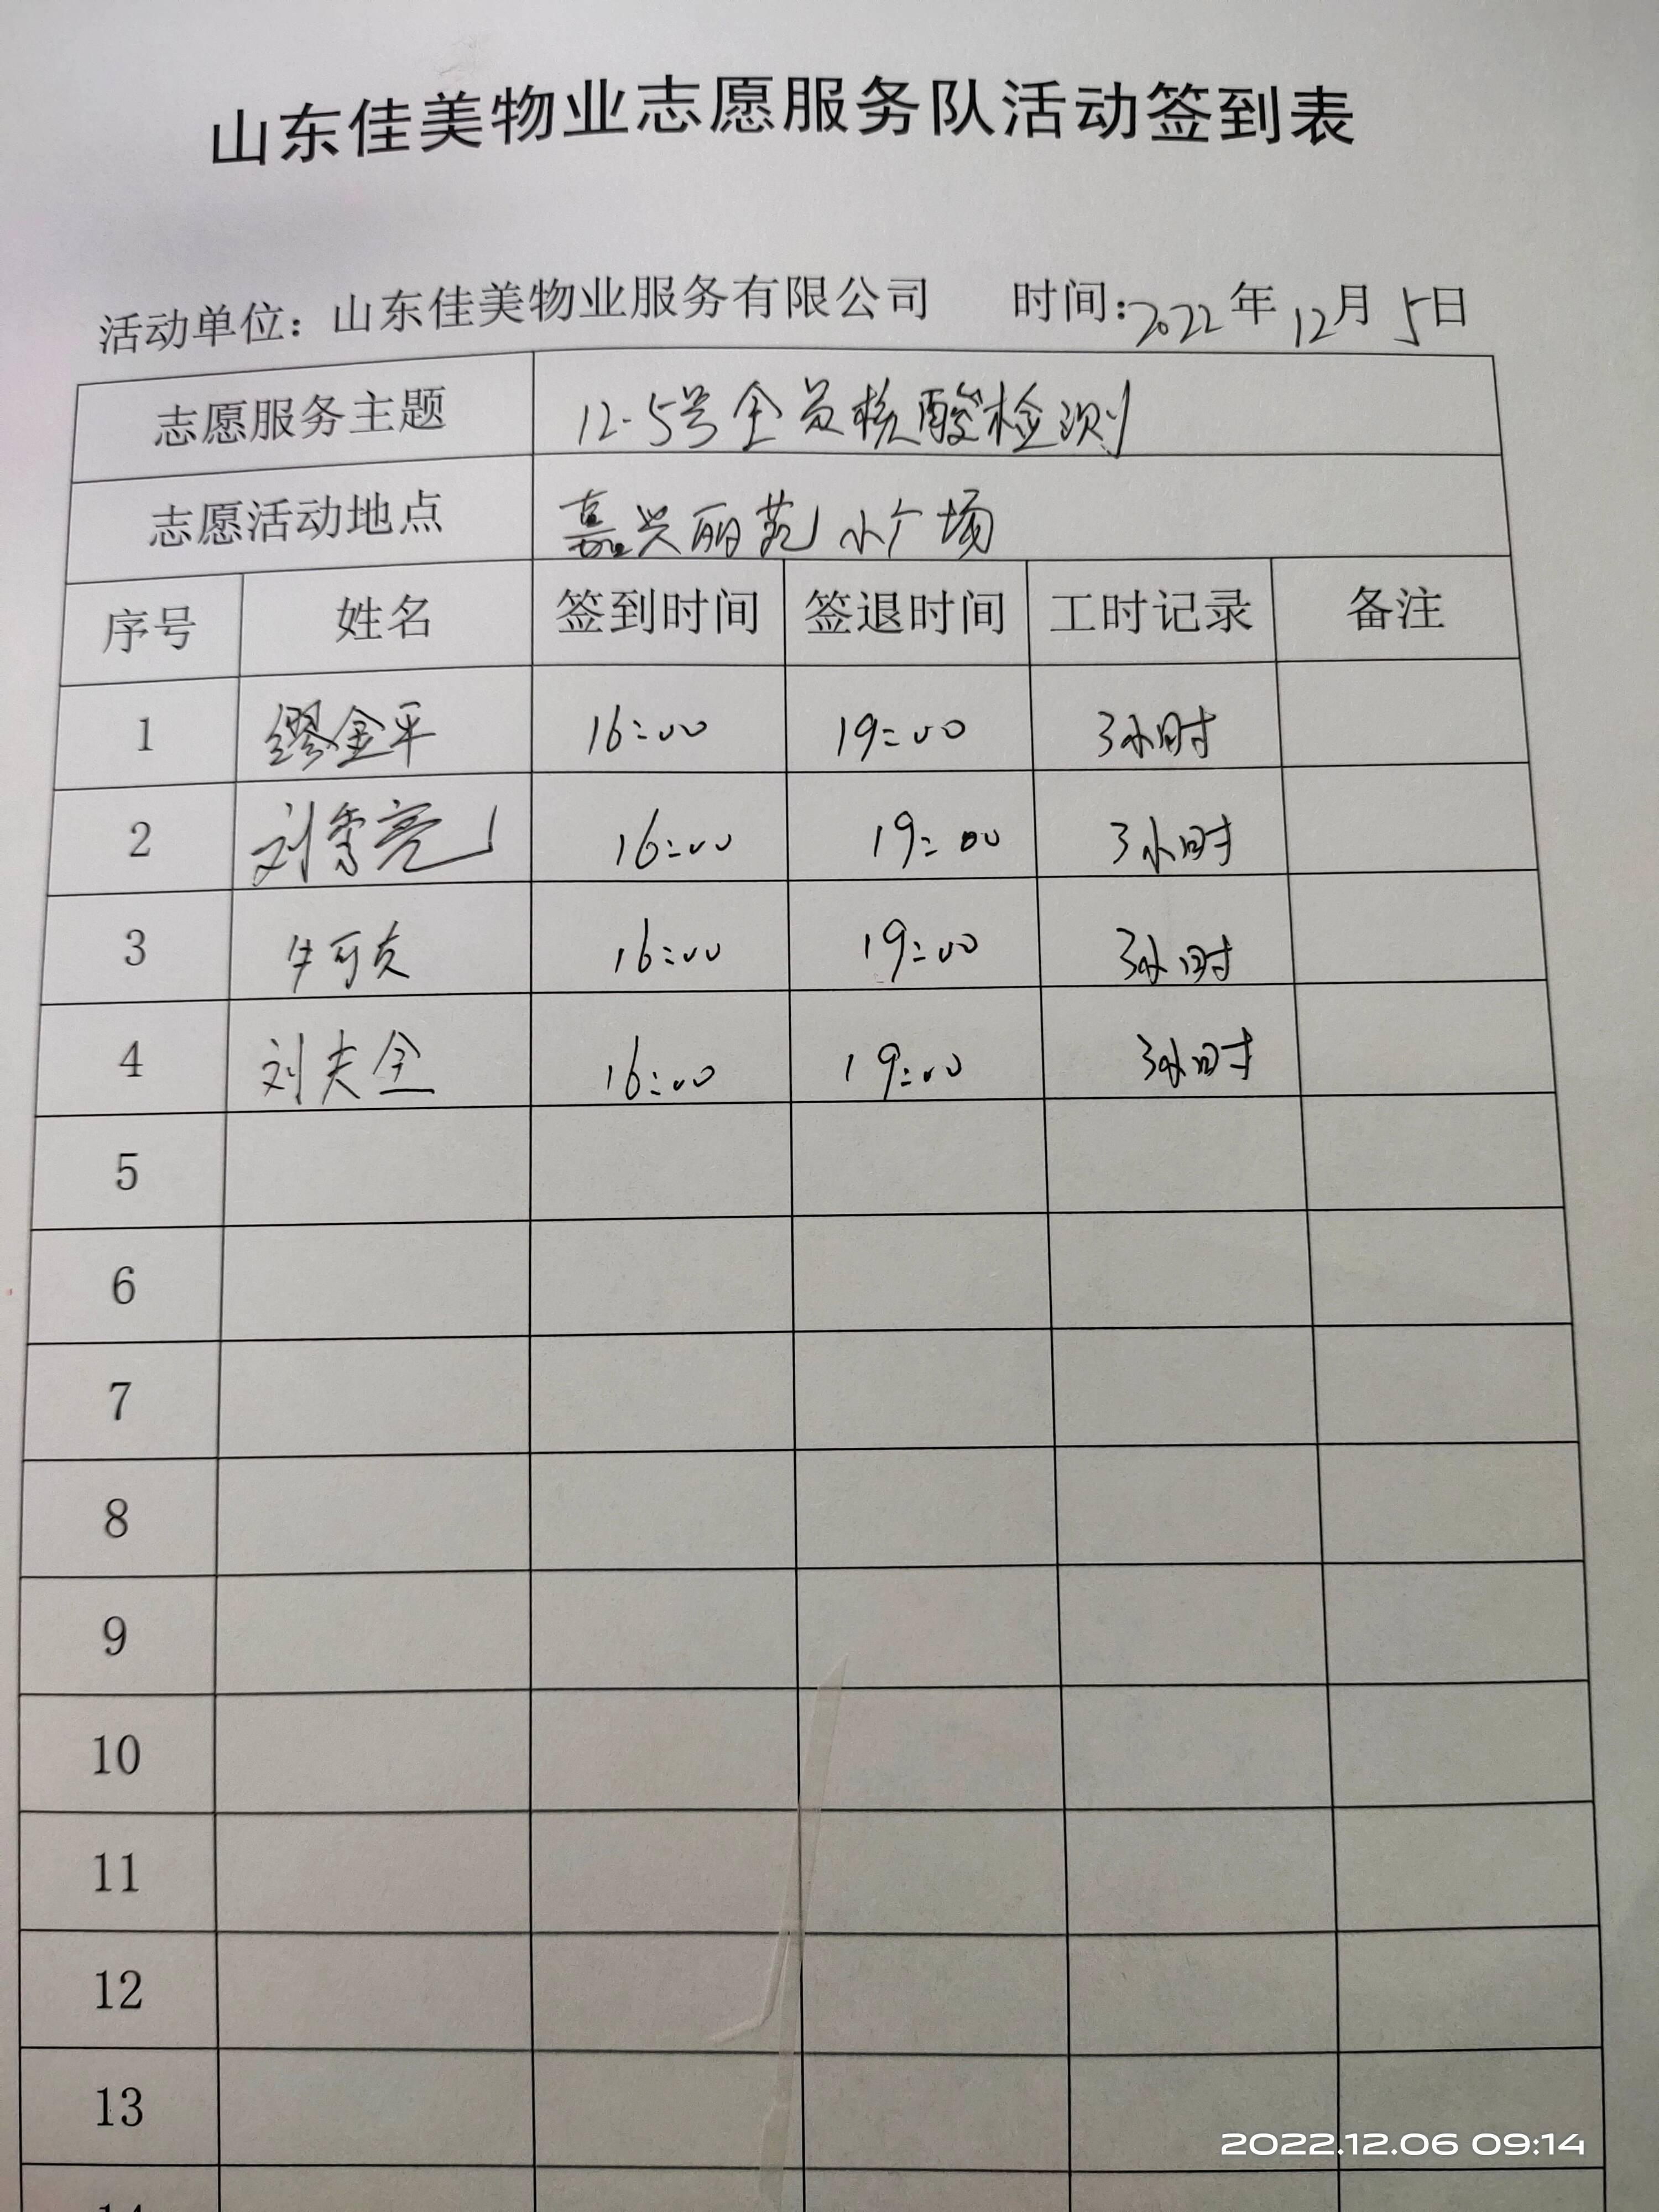 山东佳美物业志愿服务队活动签到表
活动单位：山东佳美物业服务有限公司 时间：2022年12月5日
志愿服务主题 12-5号全员核酸检测
志愿活动地点 嘉兴丽苑小广场
序号 姓名 签到时间 签退时间 工时记录 备注
1 缪金平 16:00 19:00 3小时
2 刘 亮 16:00 19:00 3小时
3 牛可 16:00 19:00 3小时
4 刘夫全 16:00 19:00 3小时
5
6
7
8
9
10
11
12
13
14
2022.12.06 09:14